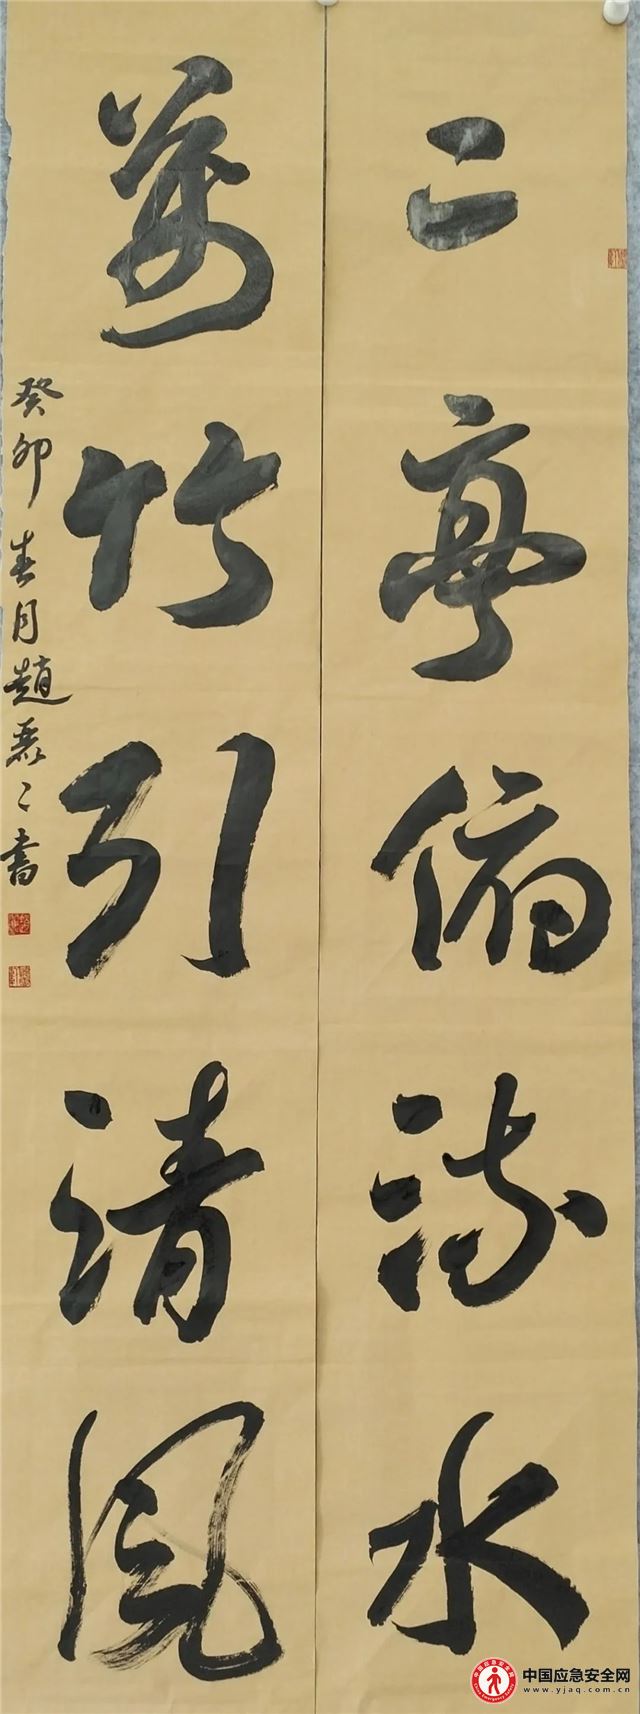 二亭俯流水
萬竹引清風
癸卯春月趙書
中国应急安全网
www.yjaq.com.cn